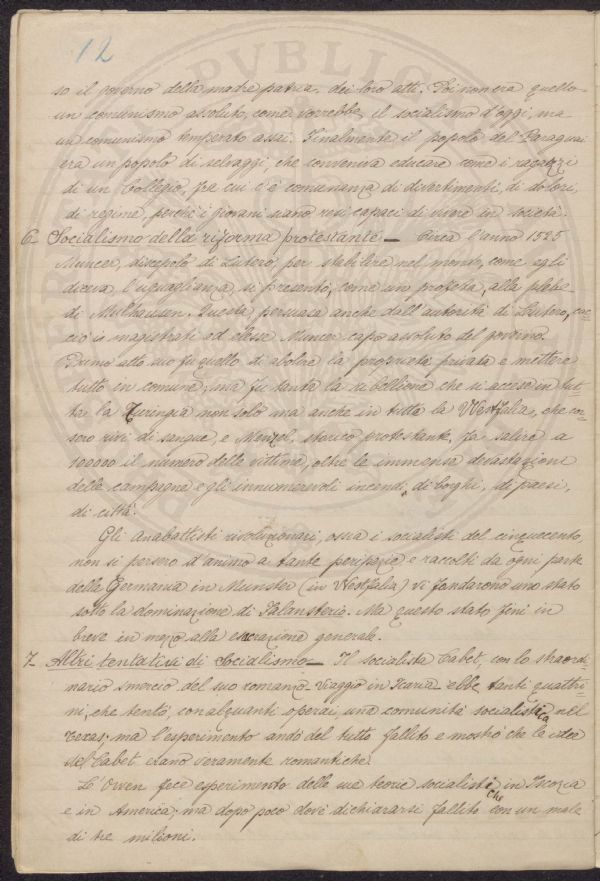 12
so il governo della madre patria, dei loro atti. Poi non era quello
un comunismo assoluto, come vorrebbe il socialismo d'oggi, ma
un comunismo temperato assai. Finalmente il popolo del Paraguai
era un popolo di selvaggi che conveniva educare come i ragazzi
di un Collegio, fra cui c'è comunanza di divertimenti, di dolori,
di regime, perchè i giovani siano resi capaci di vivere in società.
6_ Socialismo della riforma protestante _ Circa l'anno 1525
Muncer, discepolo di Lutero, per stabilire nel mondo, come egli
diceva l'uguaglianza, si presentò, come un profeta, alla plebe
di Mulhausen. Questa, persuasa anche dall'autorità di Lutero, cac=
ciò i magistrati ed elesse Muncer capo assoluto del governo.
Primo atto suo fu quello di abolire la proprietà privata e mettere
tutto in comune; ma fu tanta la ribellione che si accese in tut=
ta la Turingia non solo ma anche in tutta la Westfalia, che cor=
sero rivi di sangue, e Menzel, storico protestante, fa salire a
100000 il numero delle vittime, oltre le immense devastazioni
delle campagne e gli innumerevoli incendi, di borghi, di paesi,
di città.
Gli anabattisti rivoluzionari, ossia i socialisti del cinquecento,
non si persero d'animo a tante peripezie e raccolti da ogni parte
della Germania in Munster (in Westfalia) vi fondarono uno stato
sotto la dominazione di Falansterio. Ma questo stato finì in
breve in mezzo alla esecrazione generale.
7_ Altri tentativi di Socialismo _ Il socialista Cabet, con lo straordi=
nario smercio del suo romanzo Viaggio in Icaria ebbe tanti quattri=
ni, che tentò, con alquanti operai, una comunità socialistica nel
Texas; ma l'esperimento andò del tutto fallito e mostrò che le idee
del Cabet erano veramente romantiche.
L'Owen fece esperimento delle sue teorie socialistiche in Iscozia
e in America; ma dopo poco dovè dichiararsi fallito con un male
di tre milioni.